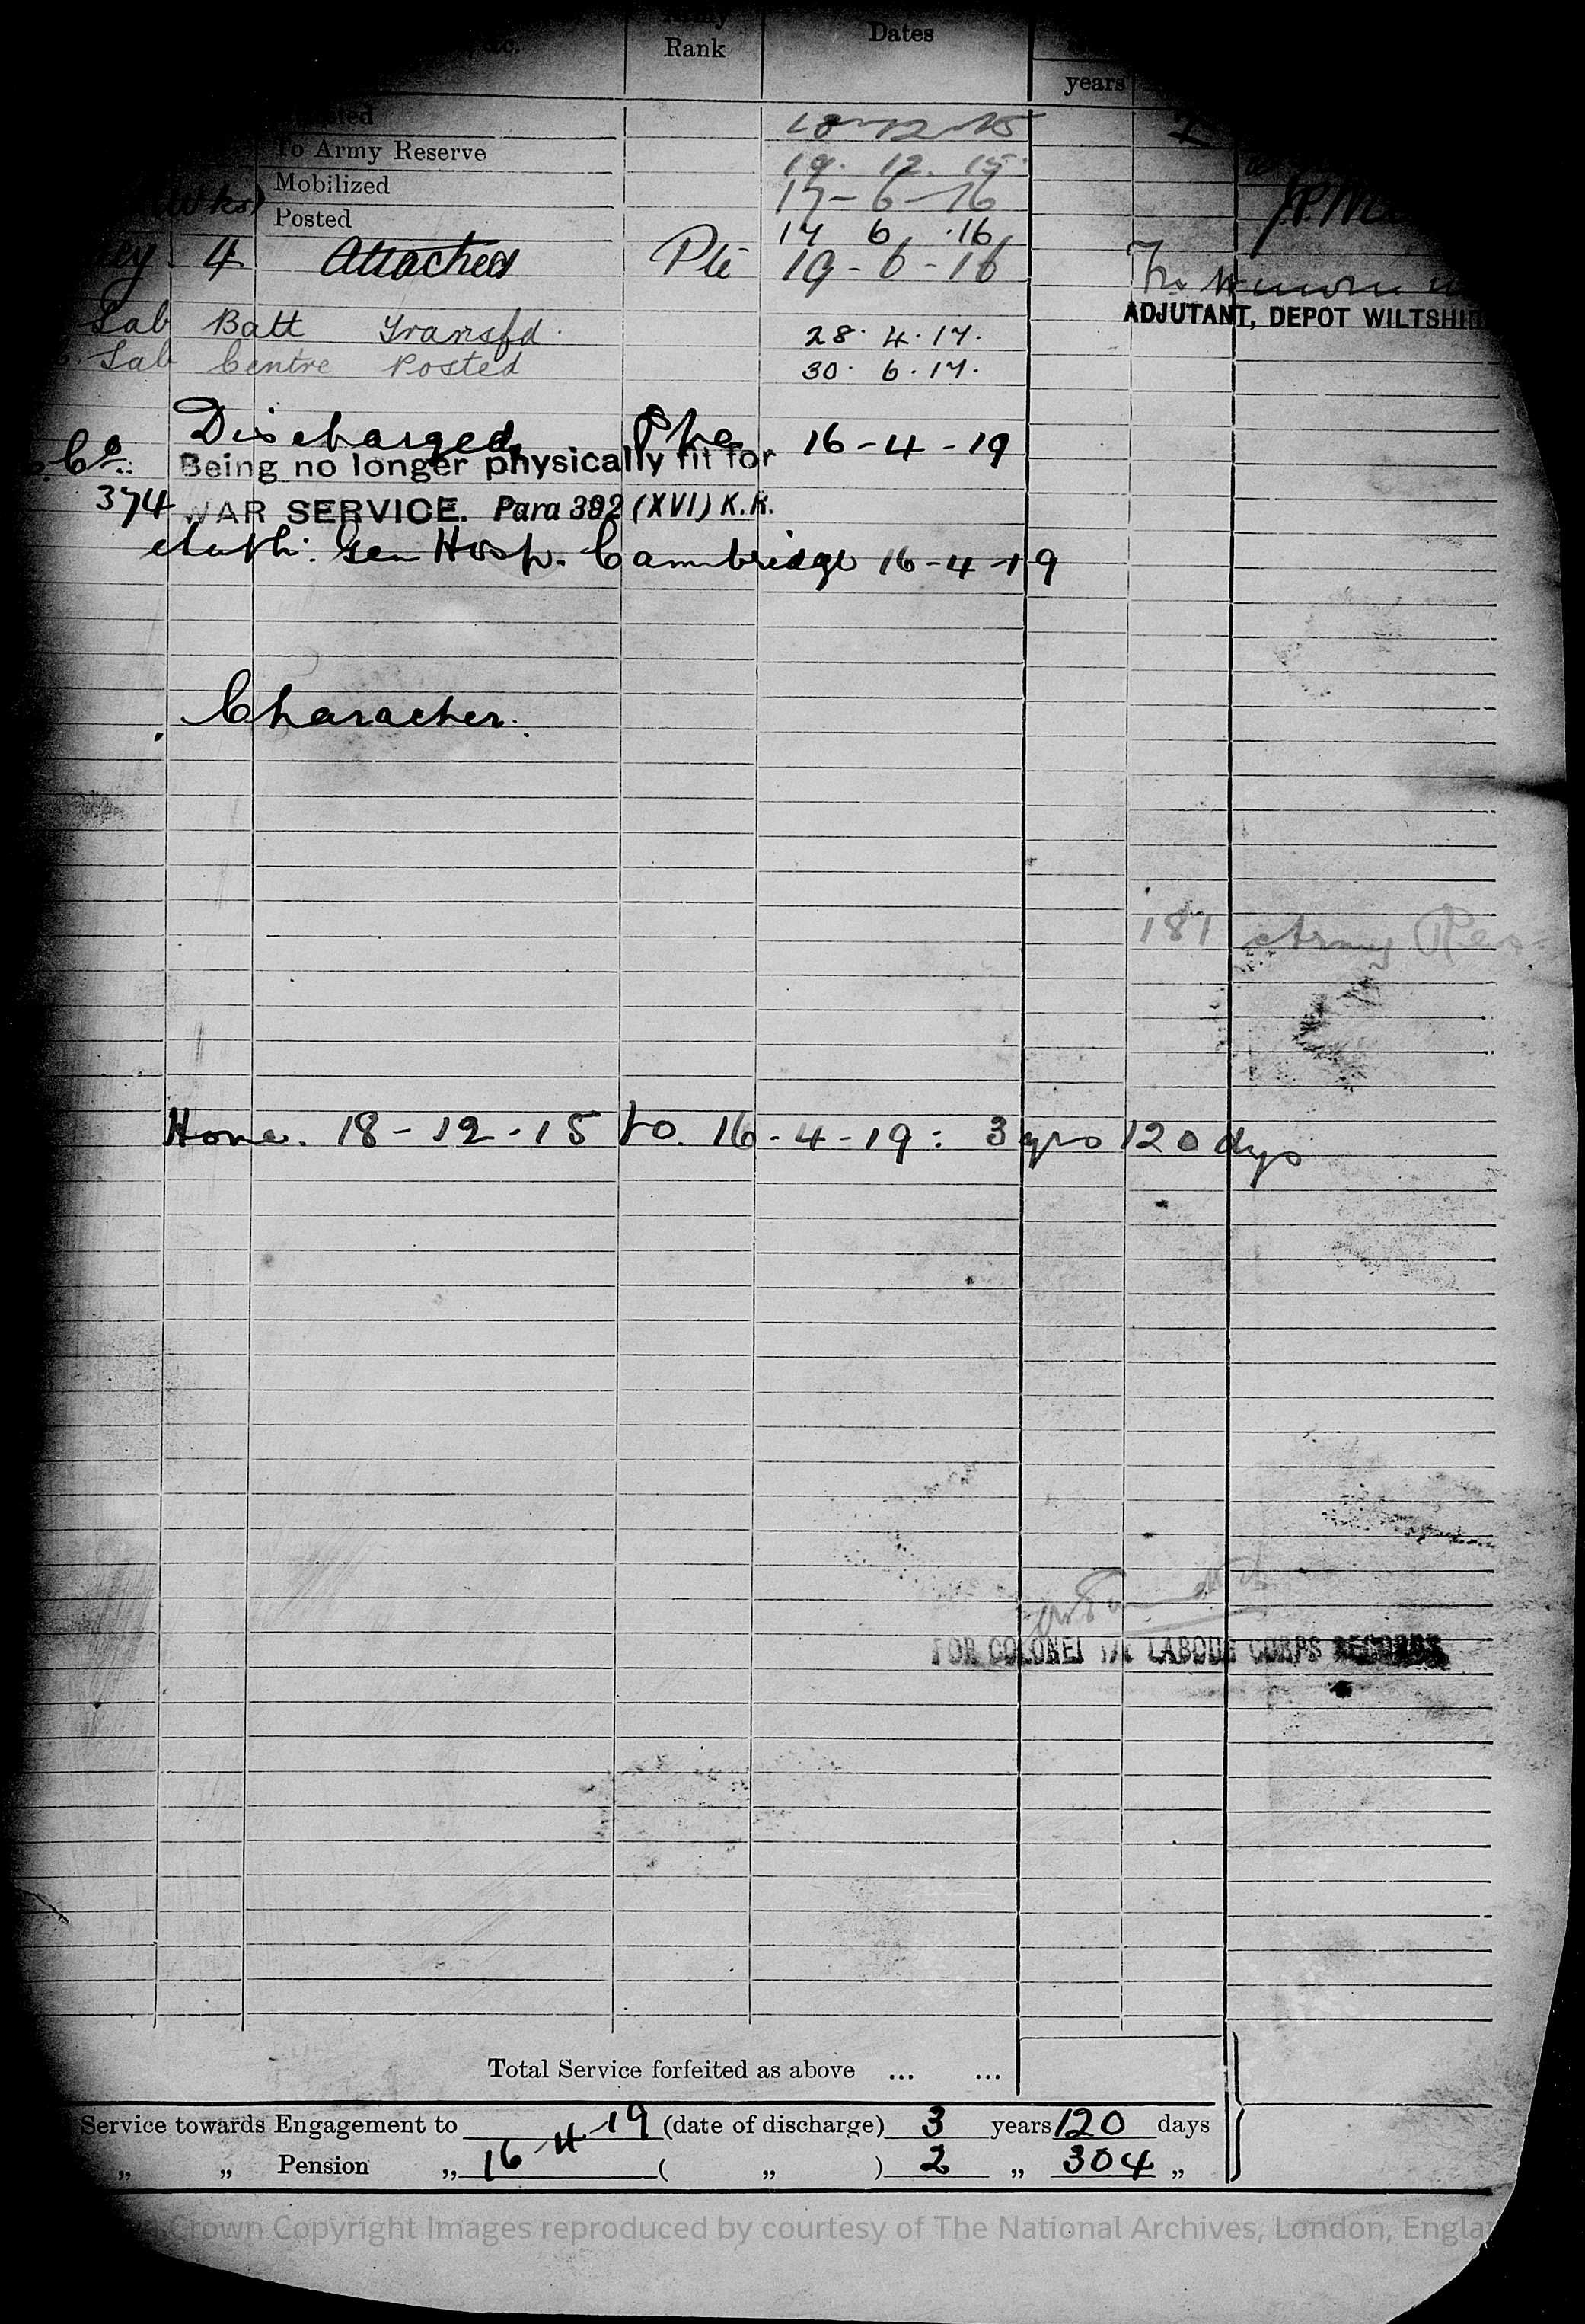 Rank Dates
years
To Army Reserve 19. 12. 15
Mobilized 17-6-16
Wks) Posted 17 6 .16
4 Attached Pte 19-6-16
ADJUTANT, DEPOT WILTSHI
Lab Batt Transfd. 28. 4. 17.
Lab Centre Posted 30. 6. 17.
Discharged Pte 16-4-19
Co. Being no longer physically fit for
374 WAR SERVICE. Para 392 (XVI) K.R.
Auth: Gen Hosp. Cambridge 16-4-19
Character.
181 Army Res.
Home. 18-12-15 to. 16-4-19: 3 yrs 120 dys
FOR COLONEL I/C LABOUR CORPS RECORDS
Total Service forfeited as above ... ...
Service towards Engagement to 16-4-19 (date of discharge) 3 years 120 days
„ „ Pension „ ( „ ) 2 „ 304 „
Crown Copyright Images reproduced by courtesy of The National Archives, London, Engla